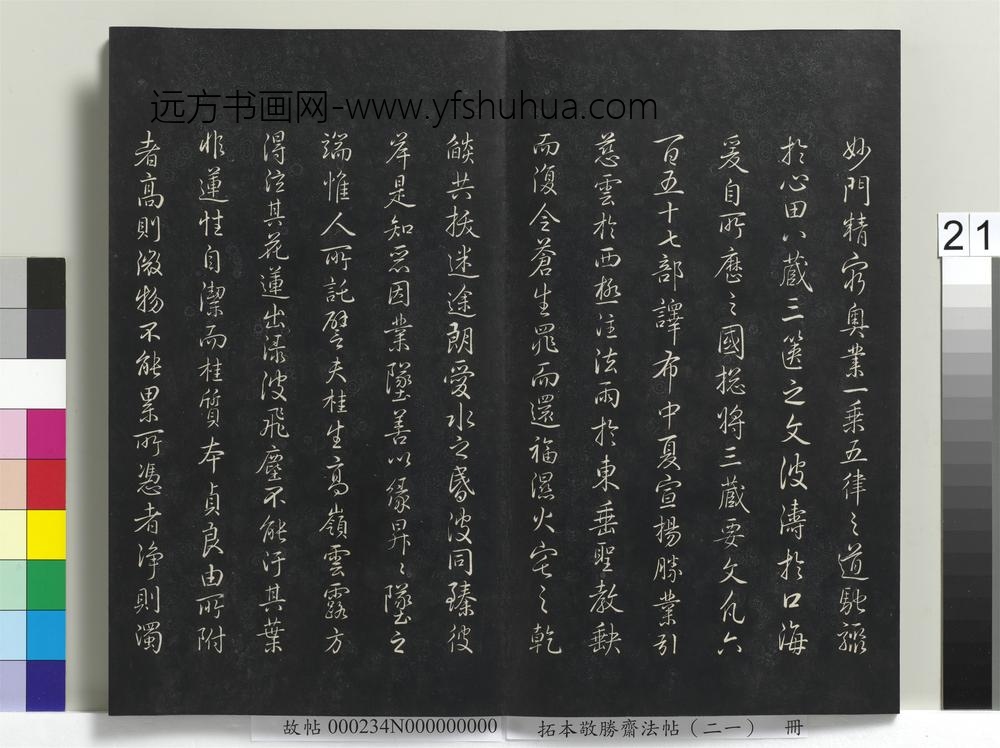 远方书画网-www.yfshuhua.com
妙門精窮奧業一乘五律之道馳驟
於心田八藏三篋之文波濤於口海
爰自所歷之國揔將三藏要文凡六
百五十七部譯布中夏宣揚勝業引
慈雲於西極注法雨於東垂聖教缺
而復全蒼生罪而還福濕火宅之乾
燄共拔迷途朗愛水之昏波同臻彼
岸是知惡因業墜善以緣昇〻墜之
端惟人所託譬夫桂生高嶺雲露方
得泫其花蓮出淥波飛塵不能汙其葉
非蓮性自潔而桂質本貞良由所附
者高則微物不能累所憑者淨則濁
21
故帖 000234N000000000 拓本敬勝齋法帖(二一) 冊